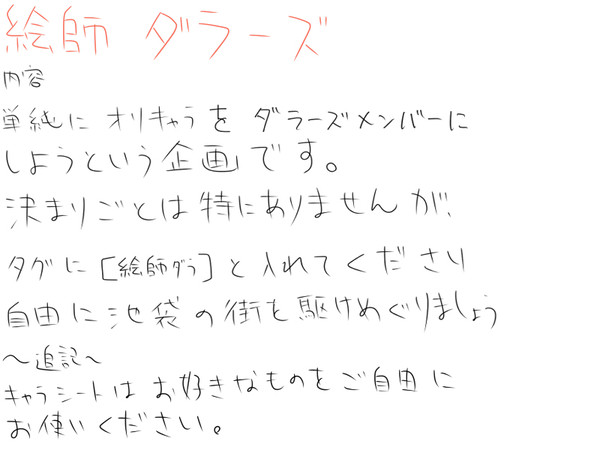 絵師 ダラーズ
内容
単純に オリキャラを ダラーズメンバーに
しようという企画です。
決まりごとは特にありませんが、
タグに [絵師ダラ] と入れてくださり
自由に池袋の街を駆けめぐりましょう
～追記～
キャラシートはお好きなものをご自由に
お使いください。